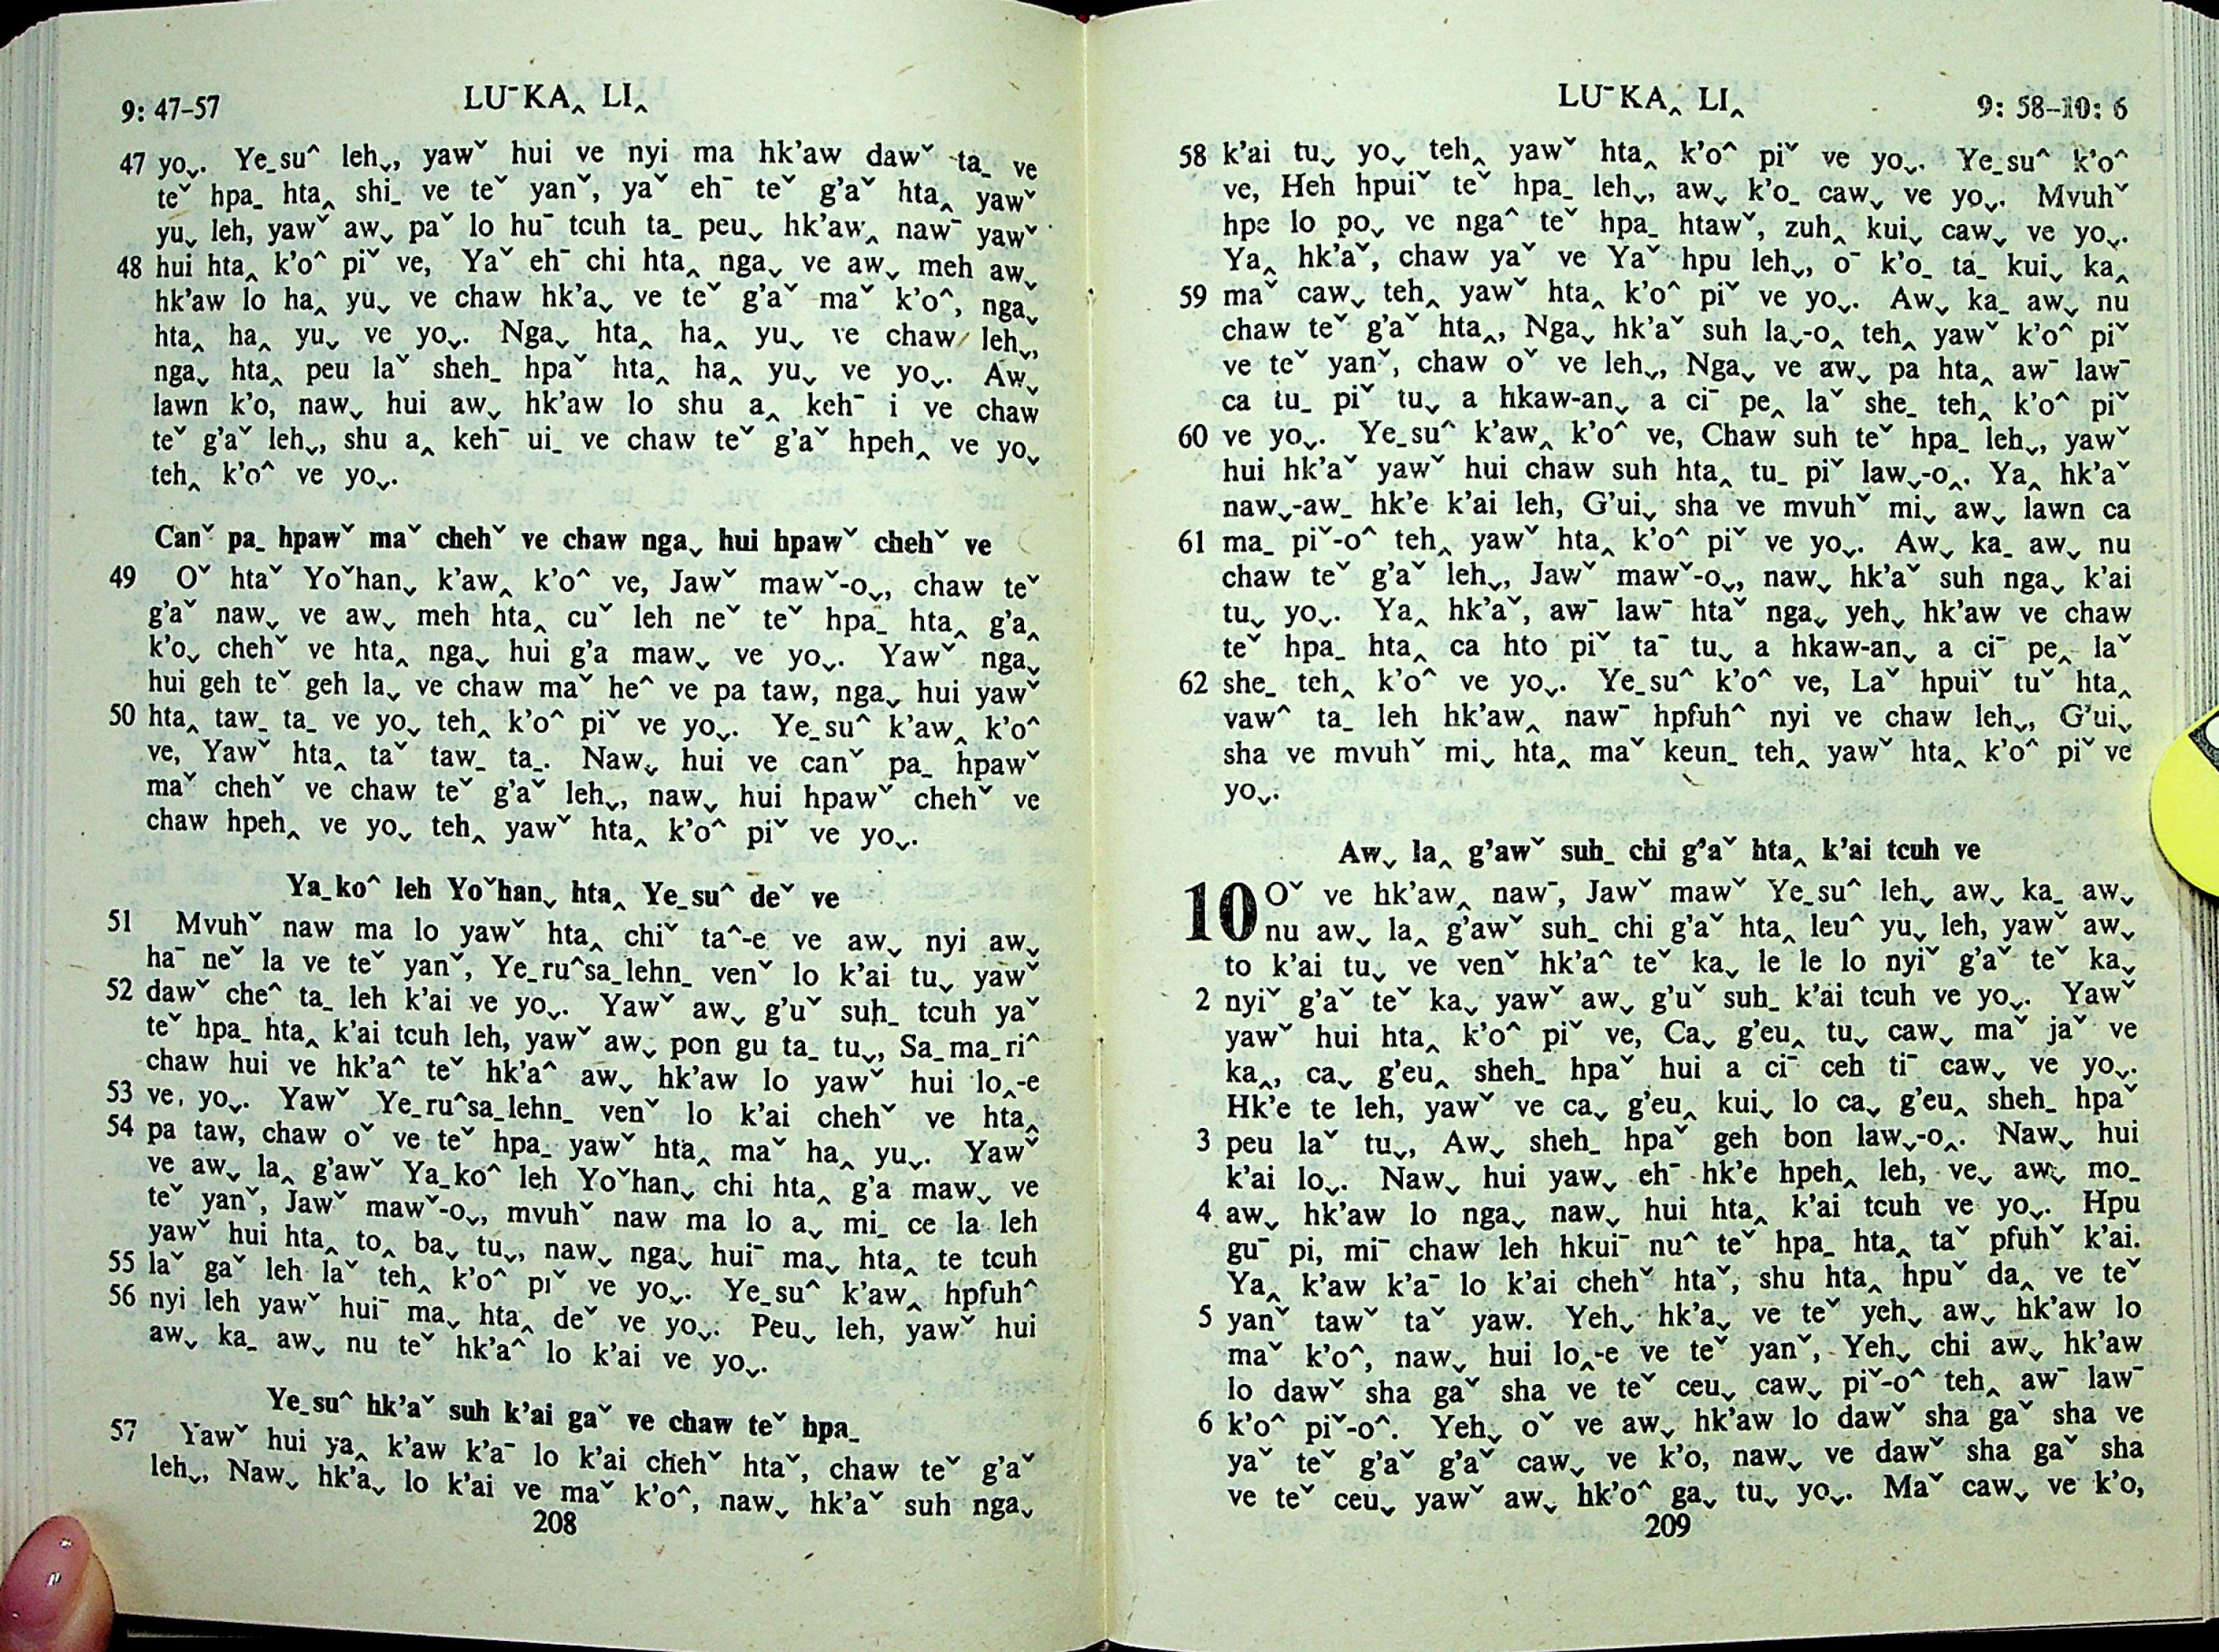 9: 47-57
LUˉKA‸ LI‸
47 yo˯. Ye̱su^ leh˯, yawˇ hui ve nyi ma hk’aw dawˇ ta̱ ve
teˇ hpa̱ hta‸ shi̱ ve teˇ yanˇ, yaˇ ehˉ teˇ g’aˇ hta‸ yawˇ
yu˯ leh, yawˇ aw˯ paˇ lo huˉ tcuh ta̱ peu˯ hk’aw‸ nawˉ yawˇ
48 hui hta‸ k’o^ piˇ ve, Yaˇ ehˉ chi hta‸ nga˯ ve aw˯ meh aw˯
hk’aw lo ha‸ yu˯ ve chaw hk’a˯ ve teˇ g’aˇ maˇ k’o^, nga˯
hta‸ ha‸ yu˯ ve yo˯. Nga˯ hta‸ ha‸ yu˯ ve chaw leh˯,
nga˯ hta‸ peu laˇ sheẖ hpaˇ hta‸ ha‸ yu˯ ve yo˯. Aw˯
lawn k’o, naw˯ hui aw˯ hk’aw lo shu a‸ kehˉ i ve chaw
teˇ g’aˇ leh˯, shu a‸ kehˉ ui̱ ve chaw teˇ g’aˇ hpeh‸ ve yo˯
teh‸ k’o^ ve yo˯.
Canˇ pa̱ hpawˇ maˇ chehˇ ve chaw nga˯ hui hpawˇ chehˇ ve
49 Oˇ htaˇ Yoˇhan˯ k’aw‸ k’o^ ve, Jawˇ mawˇ-o˯, chaw teˇ
g’aˇ naw˯ ve aw˯ meh hta‸ cuˇ leh neˇ teˇ hpa̱ hta‸ g’a‸
k’o˯ chehˇ ve hta‸ nga˯ hui g’a maw˯ ve yo˯. Yawˇ nga˯
hui geh teˇ geh la˯ ve chaw maˇ he^ ve pa taw, nga˯ hui yawˇ
50 hta‸ taw̱ ta̱ ve yo˯ teh‸ k’o^ piˇ ve yo˯. Ye̱su^ k’aw‸ k’o^
ve, Yawˇ hta‸ taˇ taw̱ ta̱. Naw˯ hui ve canˇ pa̱ hpawˇ
maˇ chehˇ ve chaw teˇ g’aˇ leh˯, naw˯ hui hpawˇ chehˇ ve
chaw hpeh‸ ve yo˯ teh‸ yawˇ hta‸ k’o^ piˇ ve yo˯.
Ya̱ko^ leh Yoˇhan˯ hta‸ Ye̱su^ deˇ ve
51 Mvuhˇ naw ma lo yawˇ hta‸ chiˇ ta^-e ve aw˯ nyi aw˯
haˉ neˇ la ve teˇ yanˇ, Ye̱ru^sa̱lehṉ venˇ lo k’ai tu˯ yawˇ
52 dawˇ che^ ta̱ leh k’ai ve yo˯. Yawˇ aw˯ g’uˇ suẖ tcuh yaˇ
teˇ hpa̱ hta‸ k’ai tcuh leh, yawˇ aw˯ pon gu ta̱ tu˯, Sa̱ma̱ri^
chaw hui ve hk’a^ teˇ hk’a^ aw˯ hk’aw lo yawˇ hui lo‸-e
53 ve, yo˯. Yawˇ Ye̱ru^sa̱lehṉ venˇ lo k’ai chehˇ ve hta‸
54 pa taw, chaw oˇ ve teˇ hpa̱ yawˇ hta‸ maˇ ha‸ yu˯. Yawˇ
ve aw˯ la‸ g’awˇ Ya̱ko^ leh Yoˇhan˯ chi hta‸ g’a maw˯ ve
teˇ yanˇ, Jawˇ mawˇ-o˯, mvuhˇ naw ma lo a˯ mi̱ ce la leh
yawˇ hui hta‸ to‸ ba˯ tu˯, naw˯ nga˯ huiˉ ma˯ hta‸ te tcuh
55 laˇ gaˇ leh laˇ teh‸ k’o^ piˇ ve yo˯. Ye̱su^ k’aw‸ hpfuh^
56 nyi leh yawˇ huiˉ ma˯ hta‸ deˇ ve yo˯. Peu˯ leh, yawˇ hui
aw˯ ka̱ aw˯ nu teˇ hk’a^ lo k’ai ve yo˯.
Ye̱su^ hk’aˇ suh k’ai gaˇ ve chaw teˇ hpa̱
57 Yawˇ hui ya‸ k’aw k’aˉ lo k’ai chehˇ htaˇ, chaw teˇ g’aˇ
leh˯, Naw˯ hk’a˯ lo k’ai ve maˇ k’o^, naw˯ hk’aˇ suh nga˯
208
LUˉKA‸ LI‸
9: 58-10: 6
58 k’ai tu˯ yo˯ teh‸ yawˇ hta‸ k’o^ piˇ ve yo˯. Ye̱su^ k’o^
ve, Heh hpuiˇ teˇ hpa̱ leh˯, aw˯ k’o̱ caw˯ ve yo˯. Mvuhˇ
hpe lo po˯ ve nga^ teˇ hpa̱ htawˇ, zuh‸ kui˯ caw˯ ve yo˯.
Ya‸ hk’aˇ, chaw yaˇ ve Yaˇ hpu leh˯, oˉ k’o̱ ta̱ kui˯ ka‸
59 maˇ caw˯ teh‸ yawˇ hta‸ k’o^ piˇ ve yo˯. Aw˯ ka̱ aw˯ nu
chaw teˇ g’aˇ hta‸, Nga˯ hk’aˇ suh la˯-o‸ teh‸ yawˇ k’o^ piˇ
ve teˇ yanˇ, chaw oˇ ve leh˯, Nga˯ ve aw˯ pa hta‸ awˉ lawˉ
ca tu̱ piˇ tu˯ a hkaw-an˯ a ciˉ pe‸ laˇ she̱ teh‸ k’o^ piˇ
60 ve yo˯. Ye̱su^ k’aw‸ k’o^ ve, Chaw suh teˇ hpa̱ leh˯, yawˇ
hui hk’aˇ yawˇ hui chaw suh hta‸ tu̱ piˇ law˯-o‸. Ya‸ hk’aˇ
naw˯-aw̱ hk’e k’ai leh, G’ui˯ sha ve mvuhˇ mi˯ aw˯ lawn ca
61 ma̱ piˇ-o^ teh‸ yawˇ hta‸ k’o^ piˇ ve yo˯. Aw˯ ka̱ aw˯ nu
chaw teˇ g’aˇ leh˯, Jawˇ mawˇ-o˯, naw˯ hk’aˇ suh nga˯ k’ai
tu˯ yo˯. Ya‸ hk’aˇ, awˉ lawˉ htaˇ nga˯ yeh˯ hk’aw ve chaw
teˇ hpa̱ hta‸ ca hto piˇ taˉ tu˯ a hkaw-an˯ a ciˉ pe‸ laˇ
62 she̱ teh‸ k’o^ ve yo˯. Ye̱su^ k’o^ ve, Laˇ hpuiˇ tuˇ hta‸
vaw^ ta̱ leh hk’aw‸ nawˉ hpfuh^ nyi ve chaw leh˯, G’ui˯
sha ve mvuhˇ mi˯ hta‸ maˇ keuṉ teh‸ yawˇ hta‸ k’o^ piˇ ve
yo˯.
Aw˯ la‸ g’awˇ suẖ chi g’aˇ hta‸ k’ai tcuh ve
10 Oˇ ve hk’aw‸ nawˉ, Jawˇ mawˇ Ye̱su^ leh˯ aw˯ ka̱ aw˯
nu aw˯ la‸ g’awˇ suẖ chi g’aˇ hta‸ leu^ yu˯ leh, yawˇ aw˯
to k’ai tu˯ ve venˇ hk’a^ teˇ ka˯ le le lo nyiˇ g’aˇ teˇ ka˯
2 nyiˇ g’aˇ teˇ ka˯ yawˇ aw˯ g’uˇ suẖ k’ai tcuh ve yo˯. Yawˇ
yawˇ hui hta‸ k’o^ piˇ ve, Ca˯ g’eu‸ tu˯ caw˯ maˇ jaˇ ve
ka‸, ca˯ g’eu‸ sheẖ hpaˇ hui a ciˉ ceh tiˉ caw˯ ve yo˯.
Hk’e te leh, yawˇ ve ca˯ g’eu‸ kui˯ lo ca˯ g’eu‸ sheẖ hpaˇ
3 peu laˇ tu˯, Aw˯ sheẖ hpaˇ geh bon law˯-o‸. Naw˯ hui
k’ai lo˯. Naw˯ hui yaw˯ ehˉ hk’e hpeh‸ leh, ve˯ aw˯ mo̱
4 aw˯ hk’aw lo nga˯ naw˯ hui hta‸ k’ai tcuh ve yo˯. Hpu
guˉ pi, miˉ chaw leh hkuiˉ nu^ teˇ hpa̱ hta‸ taˇ pfuhˇ k’ai.
Ya‸ k’aw k’aˉ lo k’ai chehˇ htaˇ, shu hta‸ hpuˇ da‸ ve teˇ
5 yanˇ tawˇ taˇ yaw. Yeh˯ hk’a˯ ve teˇ yeh˯ aw˯ hk’aw lo
maˇ k’o^, naw˯ hui lo‸-e ve teˇ yanˇ, Yeh˯ chi aw˯ hk’aw
lo dawˇ sha gaˇ sha ve teˇ ceu˯ caw˯ piˇ-o^ teh‸ awˉ lawˉ
6 k’o^ piˇ-o^. Yeh˯ oˇ ve aw˯ hk’aw lo dawˇ sha gaˇ sha ve
yaˇ teˇ g’aˇ g’aˇ caw˯ ve k’o, naw˯ ve dawˇ sha gaˇ sha
ve teˇ ceu˯ yawˇ aw˯ hk’o^ ga˯ tu˯ yo˯. Maˇ caw˯ ve k’o,
209